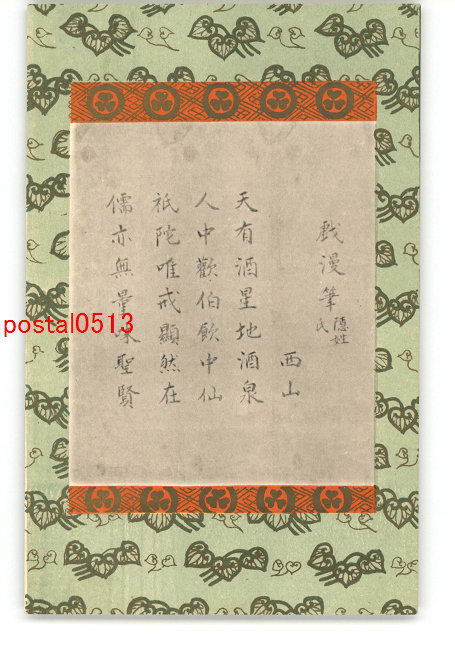 戯漫筆 隠姓氏
西山
天有酒星地酒泉
人中歡伯飲中仙
祇陀唯戒顯然在
儒亦無量味聖賢
postal0513